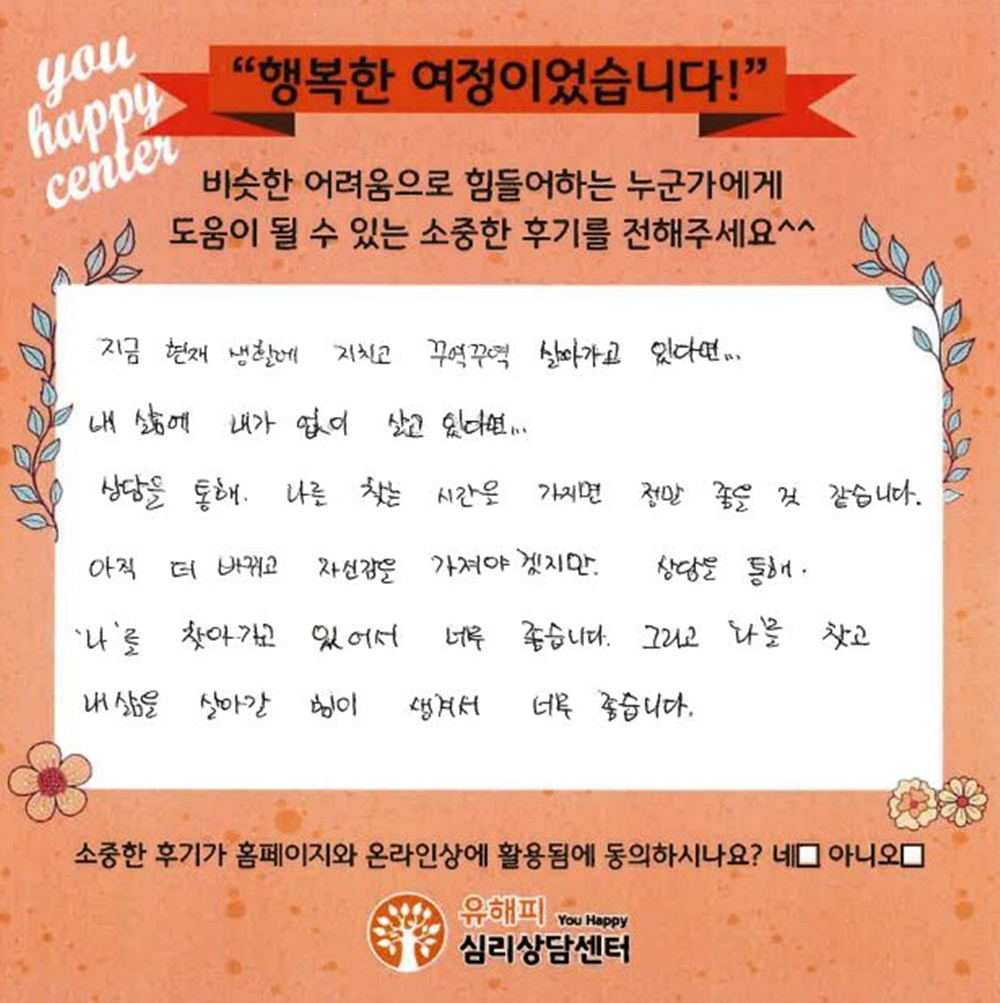 you
happy
center
“행복한 여정이었습니다!”
비슷한 어려움으로 힘들어하는 누군가에게
도움이 될 수 있는 소중한 후기를 전해주세요^^
지금 현재 생활에 지치고 꾸역꾸역 살아가고 있다면...
내 삶에 내가 없이 살고 있다면...
상담을 통해. 나를 찾는 시간을 가지면 정말 좋을 것 같습니다.
아직 더 바뀌고 자신감을 가져야겠지만. 상담을 통해.
'나'를 찾아가고 있어서 너무 좋습니다. 그리고 '나'를 찾고
내 삶을 살아갈 힘이 생겨서 너무 좋습니다.
소중한 후기가 홈페이지와 온라인상에 활용됨에 동의하시나요? 네□ 아니오□
유해피 You Happy
심리상담센터